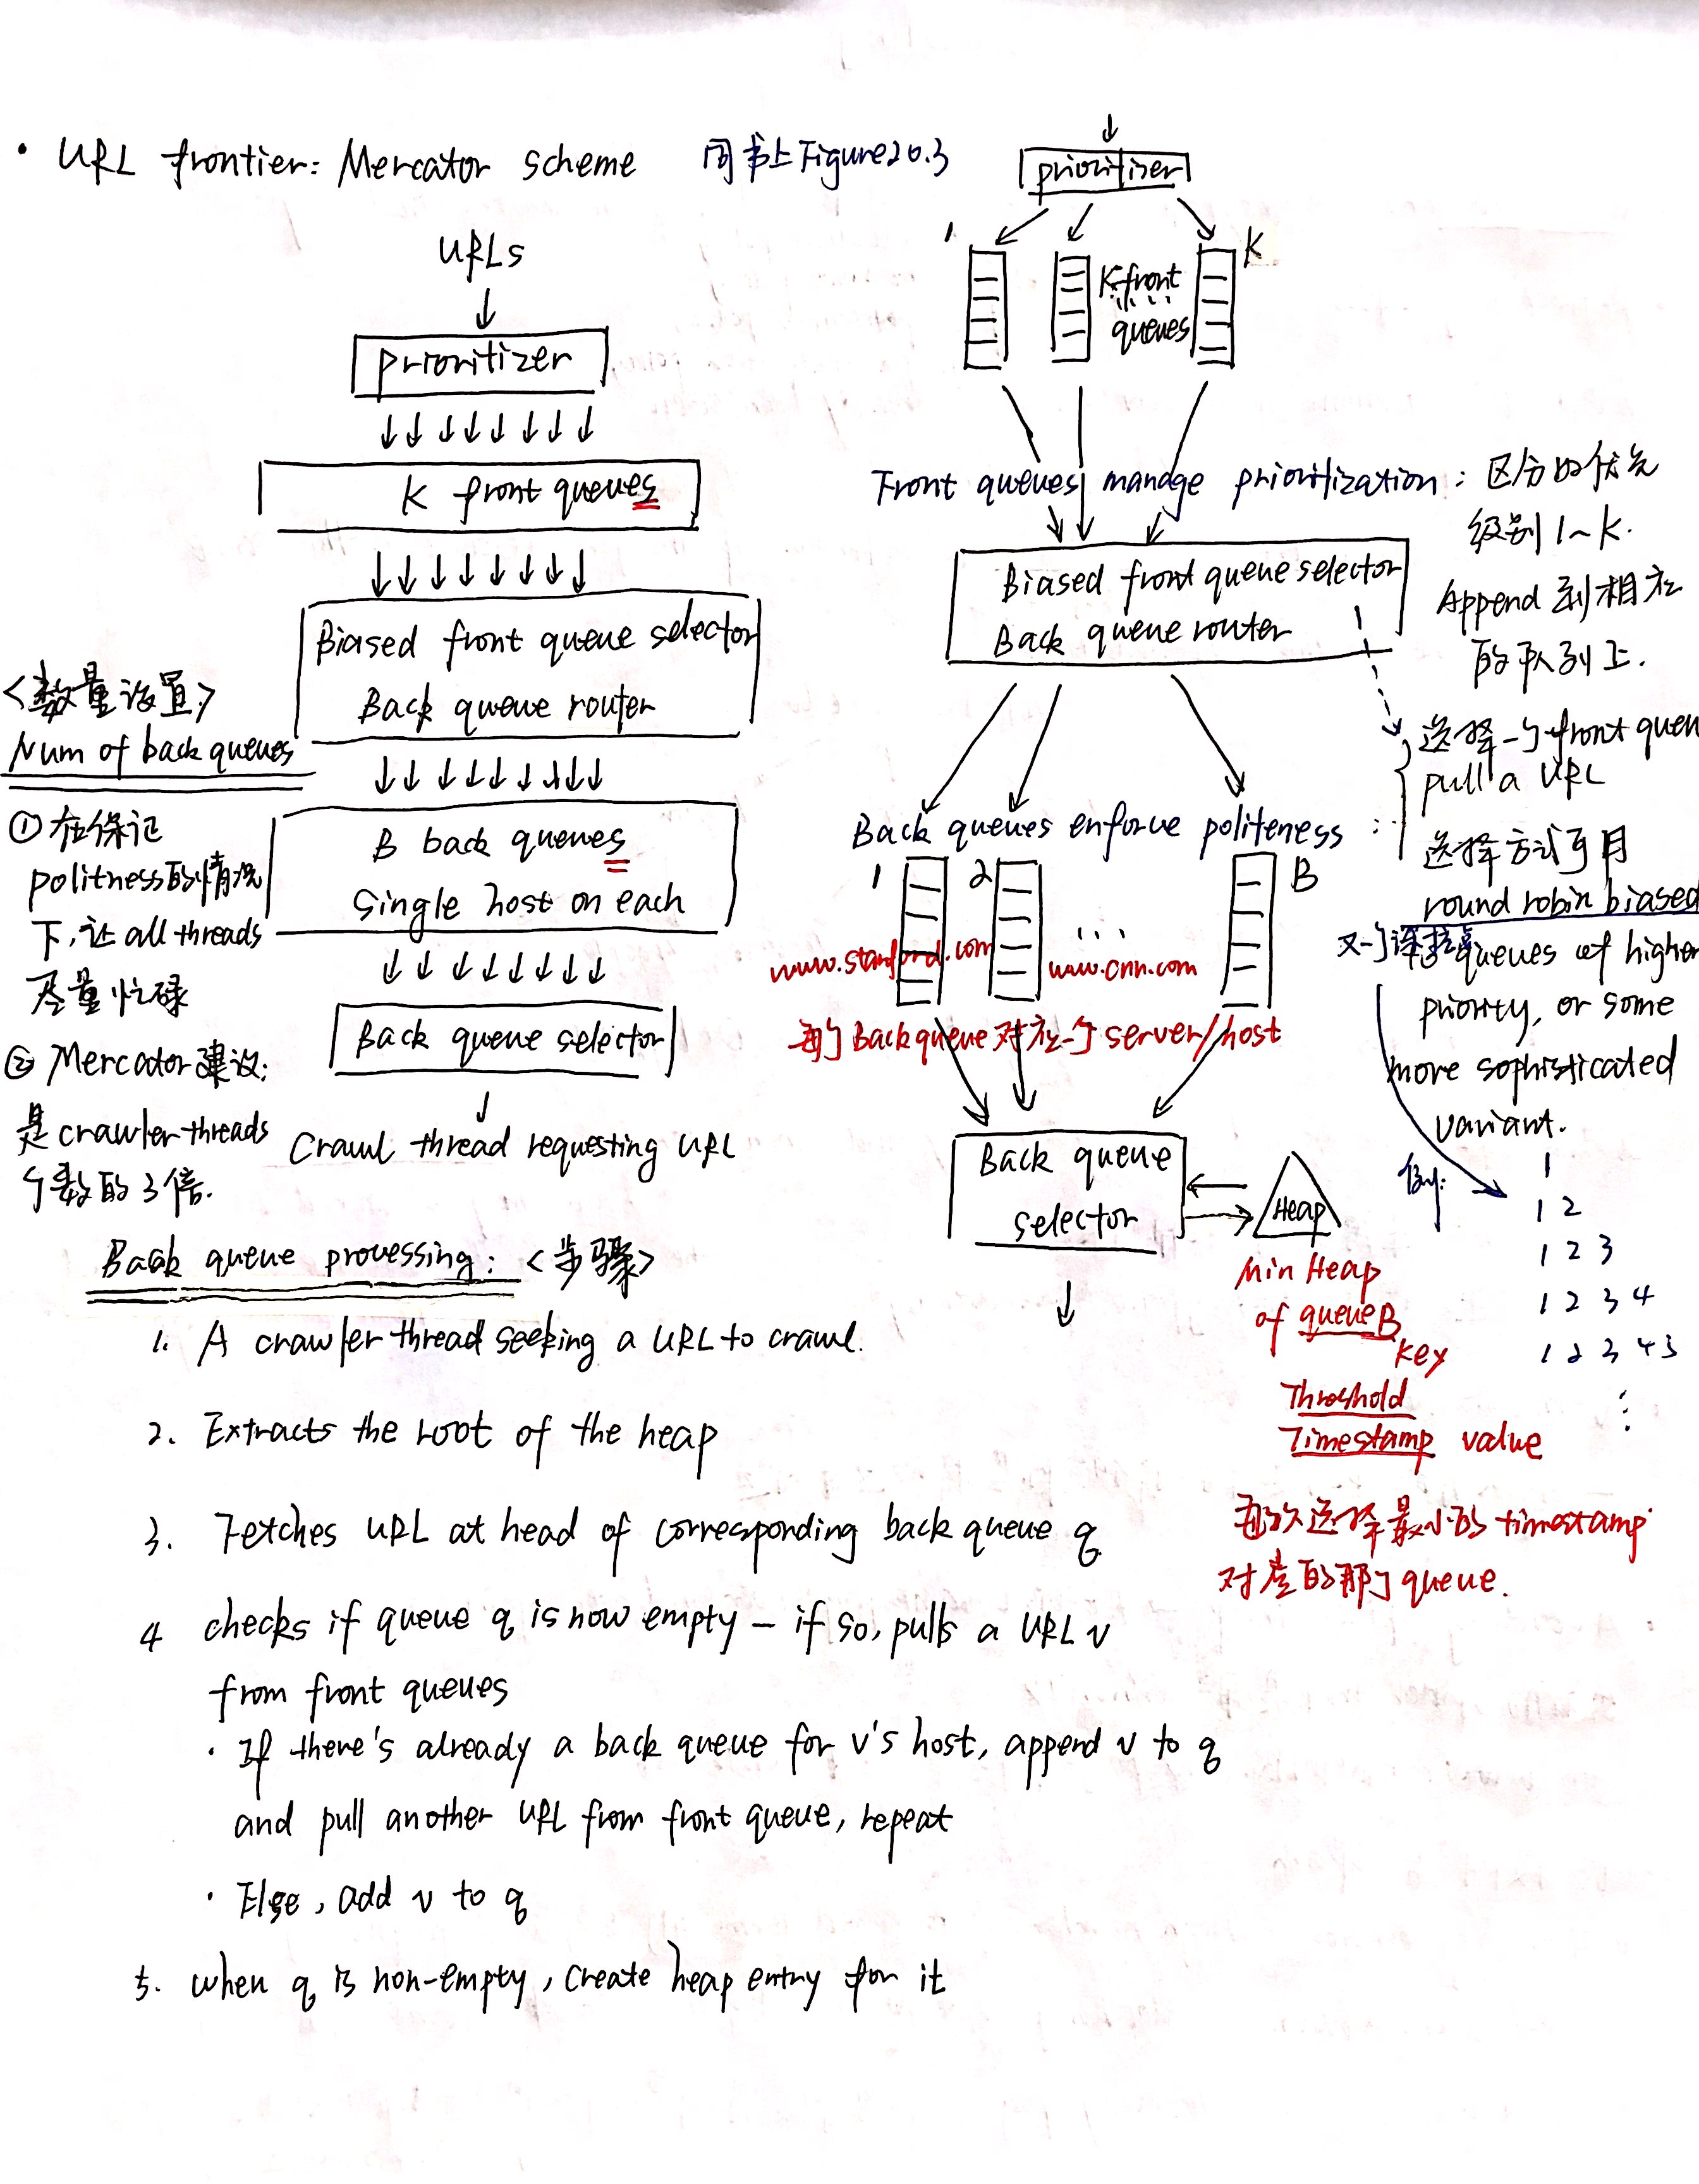 • URL frontier: Mercator scheme 同书上Figure20.3
URLs
↓
prioritizer
K front queues
Biased front queue selector
Back queue router
B back queues
Single host on each
Back queue selector
Crawl thread requesting URL
<数量设置>
Num of back queues
① 在保证
politness的情况
下,让 all threads
尽量忙碌
② Mercator建议:
是crawler threads
个数的3倍.
prioritizer
1
K
K front
queues
Front queues manage prioritization: 区分的优先
级别 1~K.
Append 到相应
的队列上.
Biased front queue selector
Back queue router
选择一个front queue
pull a URL
选择方式可用
round robin biased
queues of higher
priority, or some
more sophisticated
variant.
例:
1
1 2
1 2 3
1 2 3 4
1 2 3 4 5
⋮
Back queues enforce politeness:
1
2
...
B
www.stanford.com
www.cnn.com
每个Back queue对应一个server/host
Back queue
selector
Heap
Min Heap
of queue B
key
Threshold
Timestamp value
每次选择最小的timestamp
对应的那个queue.
Back queue processing: <步骤>
1. A crawler thread seeking a URL to crawl.
2. Extracts the root of the heap
3. Fetches URL at head of corresponding back queue q
4 checks if queue q is now empty — if so, pulls a URL v
from front queues
· If there's already a back queue for v's host, append v to q
and pull another URL from front queue, repeat
· Else, add v to q
5. when q is non-empty, create heap entry for it